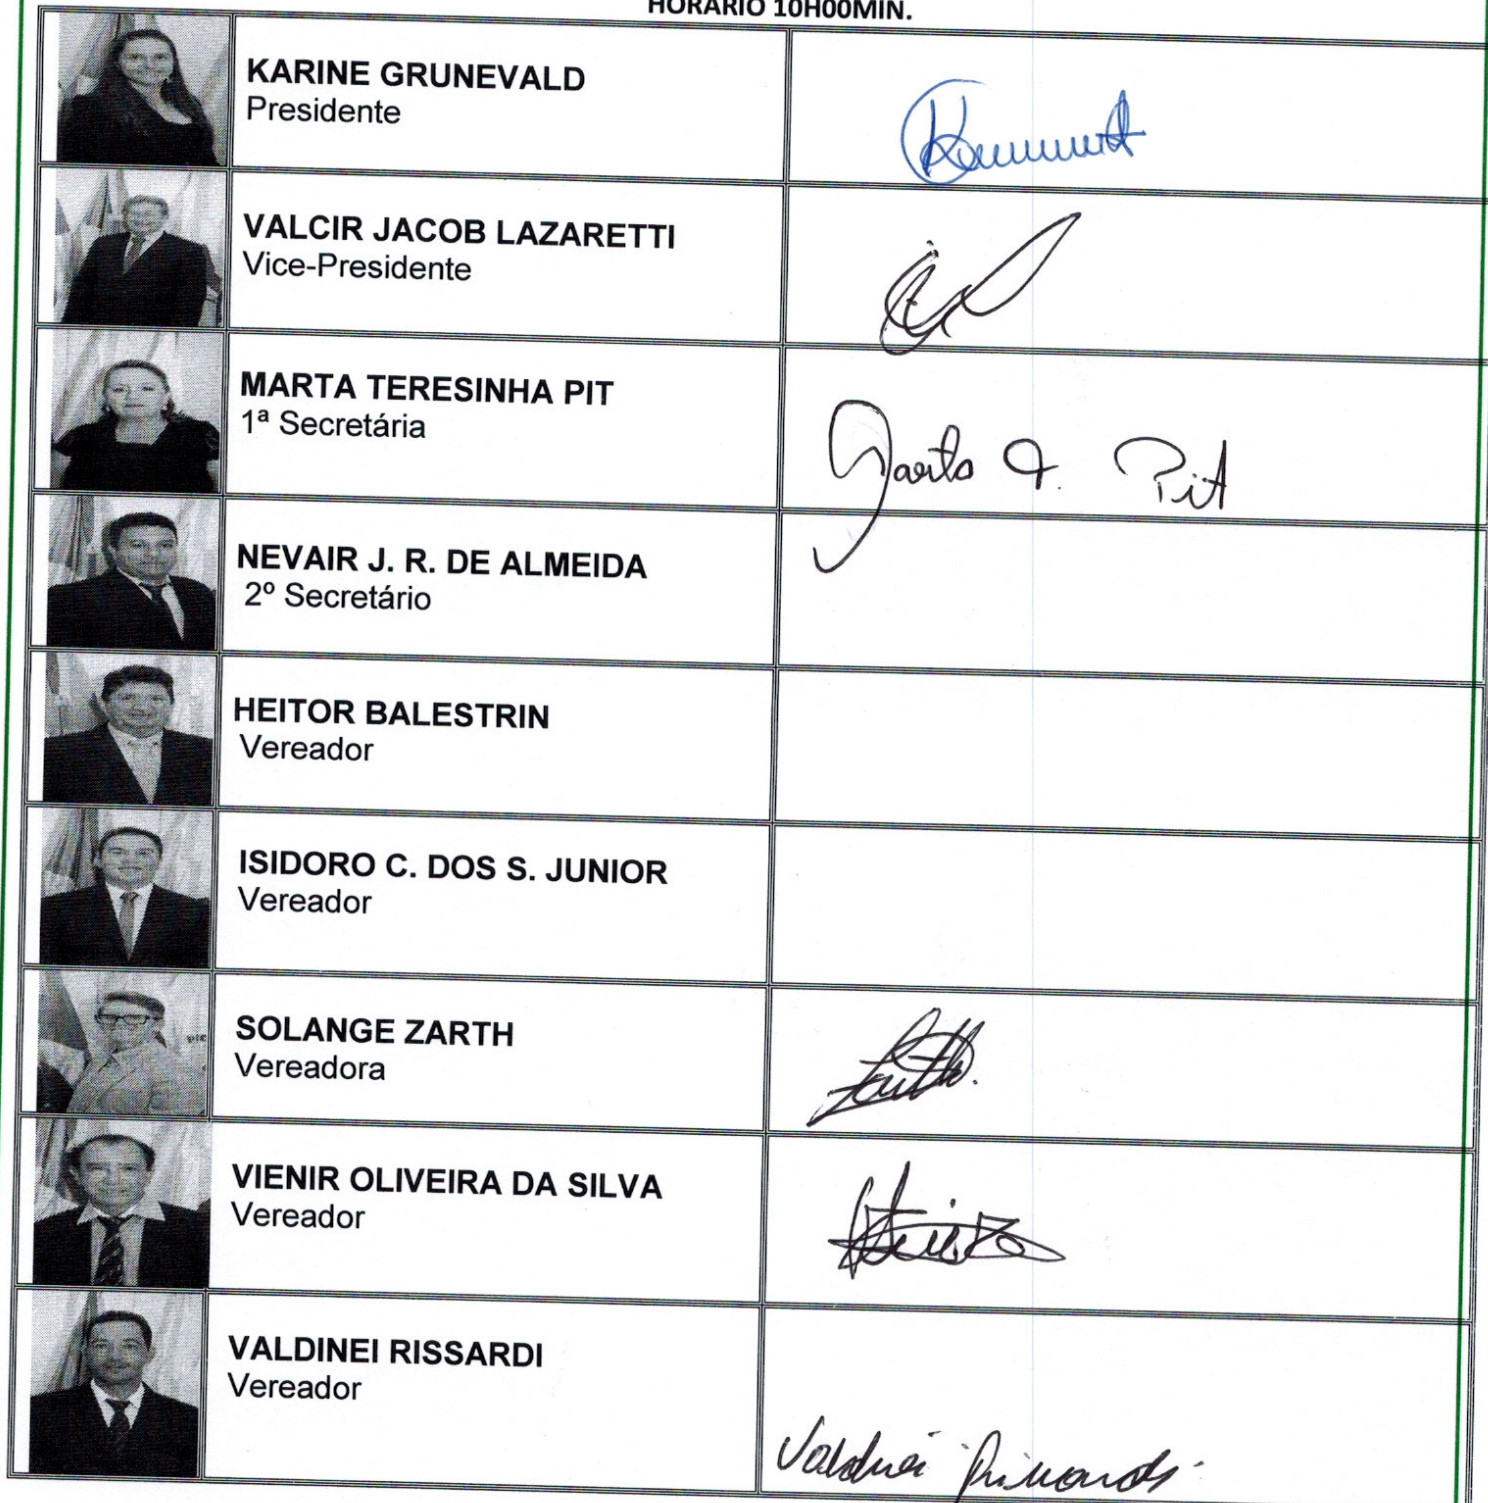 HORÁRIO 10H00MIN.
KARINE GRUNEVALD
Presidente
VALCIR JACOB LAZARETTI
Vice-Presidente
MARTA TERESINHA PIT
1ª Secretária
Marta T. Pit
NEVAIR J. R. DE ALMEIDA
2º Secretário
HEITOR BALESTRIN
Vereador
ISIDORO C. DOS S. JUNIOR
Vereador
SOLANGE ZARTH
Vereadora
VIENIR OLIVEIRA DA SILVA
Vereador
VALDINEI RISSARDI
Vereador
Valdinei Rissardi